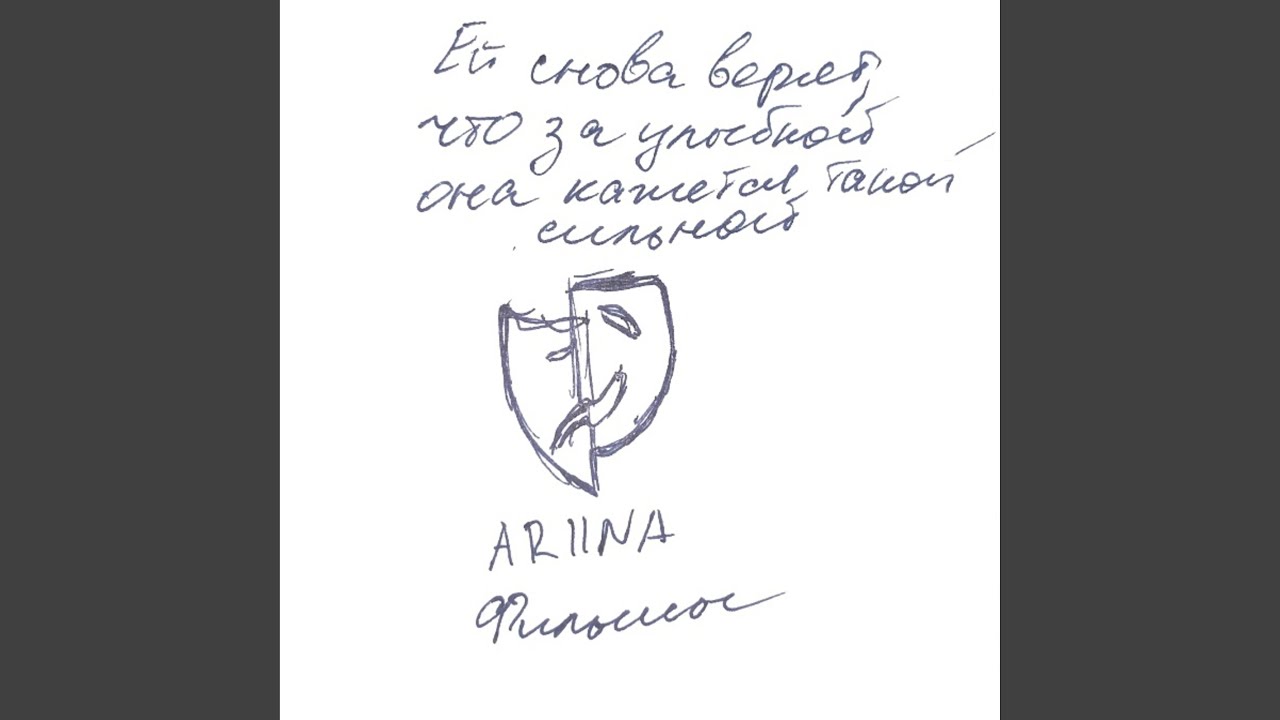 Ей снова верят,
что за улыбкой
она кажется такой
сильной
ARIINA
Фильмы